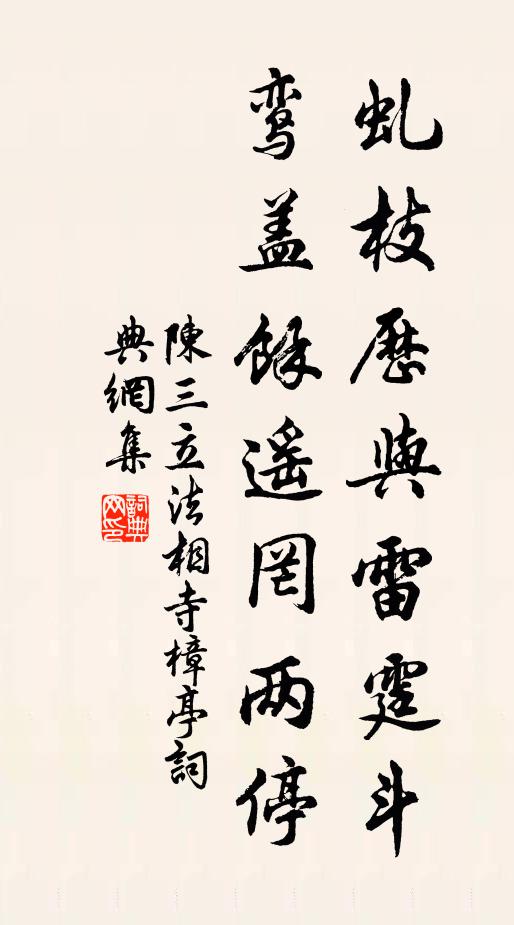 虬枝歷與雷霆斗
鸾盖餘遥罔两停
陳三立法相寺樟亭詞
典網集
詞典网印